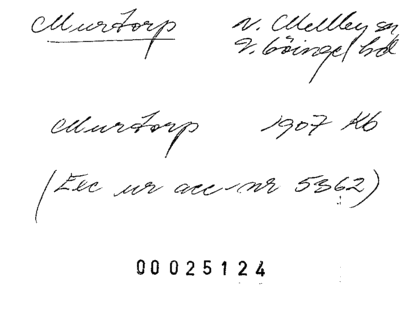 Murtorp V. Melby sn
V. Göinge hd
Murtorp 1907 Kb
(Exc ur acc-nr 5362)
00025124